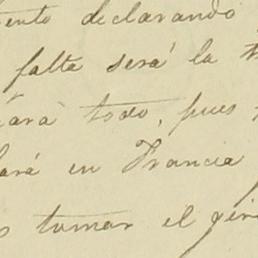 ento declarando
falta será la
ará todo, pues
ará en Francia
tomar el